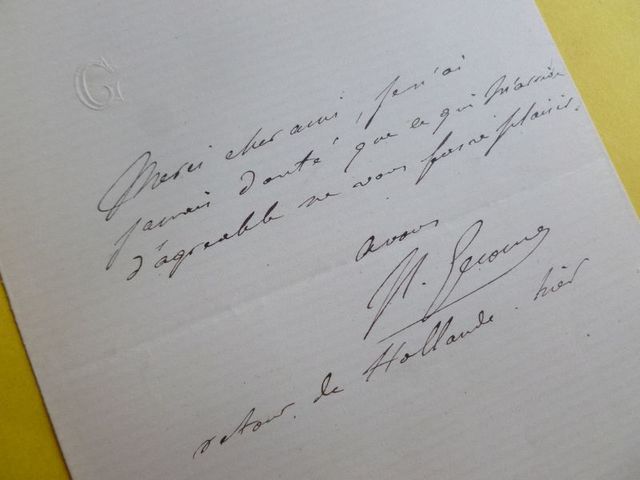 G
Merci cher ami, je n'ai
jamais douté que ce qui m'arrive
d'agréable ne vous fasse plaisir.
a vous
retour de Hollande hier